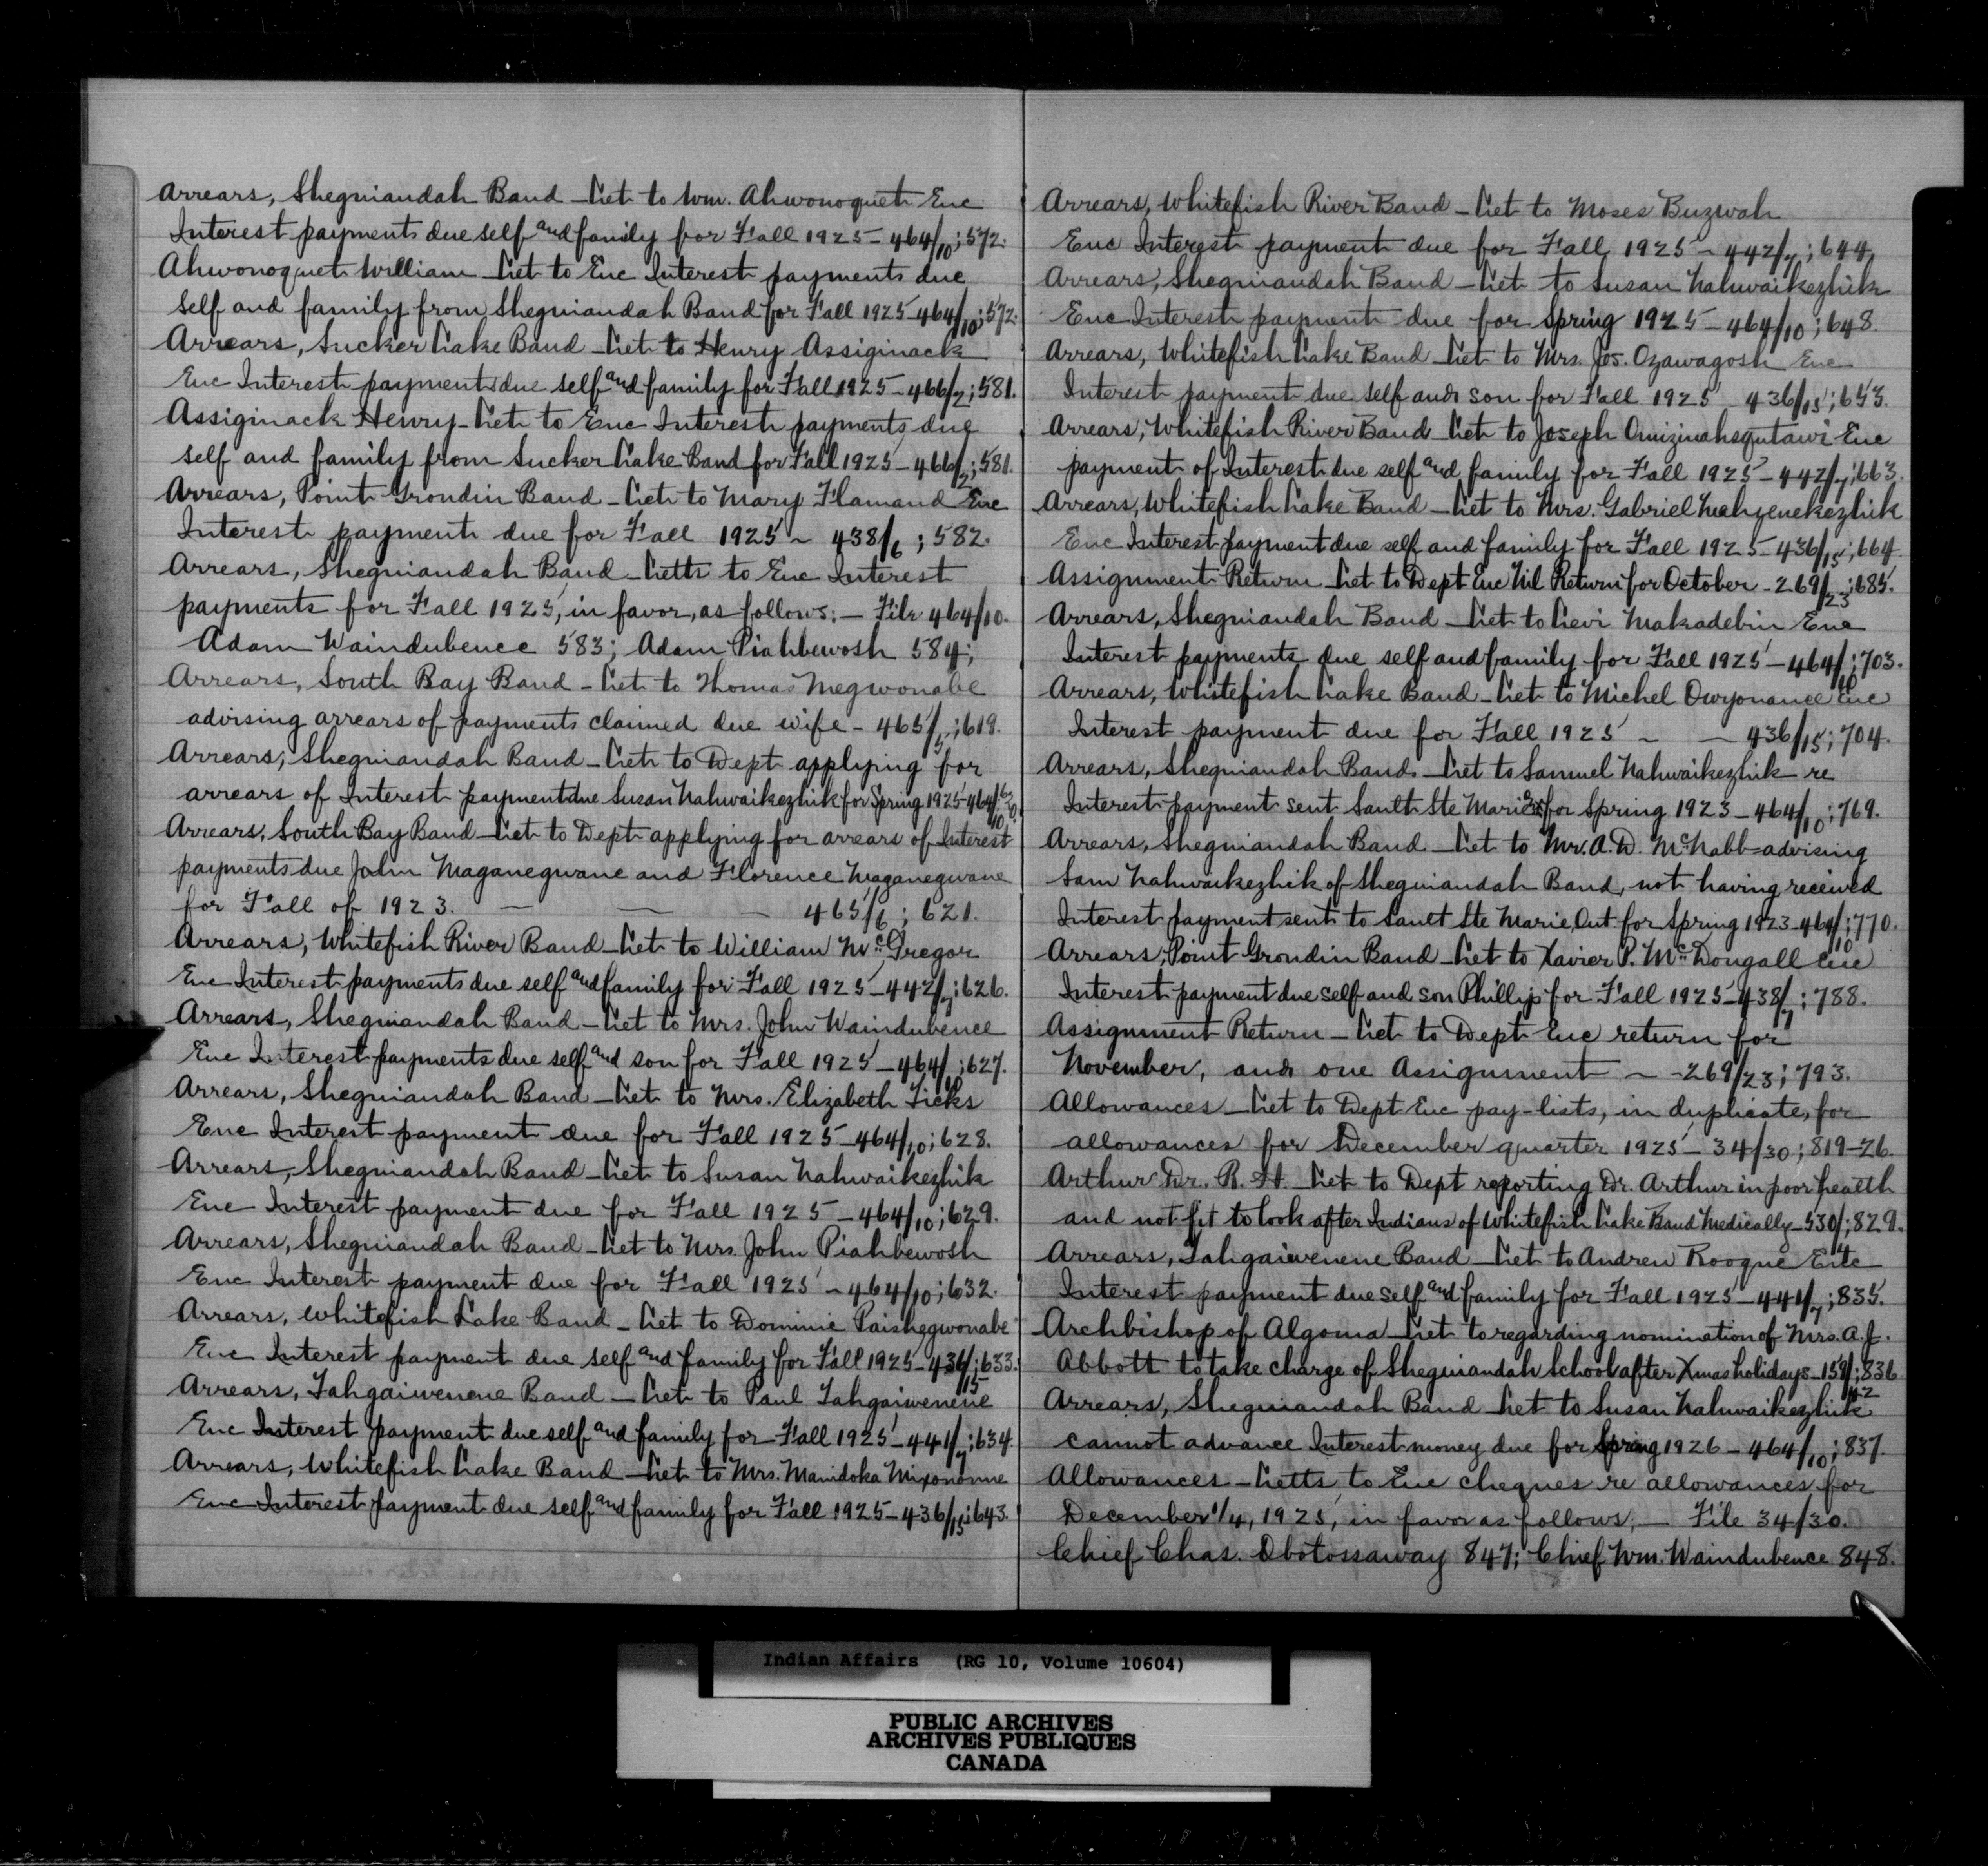 Arrears, Sheguiandah Band - Let to Wm. Ahwonoquet Enc
Interest payments due self and family for Fall 1925 - 464/10; 572.
Ahwonoquet William - Let to Enc Interest payments due
self and family from Sheguiandah Band for Fall 1925 - 464/10; 572.
Arrears, Sucker Lake Band - Let to Henry Assiginack
Enc Interest payments due self and family for Fall 1925 - 466/2; 581.
Assiginack Henry - Let to Enc Interest payments due
self and family from Sucker Lake Band for Fall 1925 - 466/2; 581.
Arrears, Point Grondin Band - Let to Mary Flamand Enc
Interest payment due for Fall 1925 - 438/6; 582.
Arrears, Sheguiandah Band - Letts to Enc Interest
payments for Fall 1925, in favor, as follows: - File 464/10.
Adam Waindubence 583; Adam Piahbewosh 584;
Arrears, South Bay Band - Let to Thomas Megwonabe
advising arrears of payments claimed due wife - 465/5; 619.
Arrears, Sheguiandah Band - Let to Dept applying for
arrears of Interest payment due Susan Nahwaikezhik for Spring 1925 - 464/10; 620.
Arrears, South Bay Band - Let to Dept applying for arrears of Interest
payments due John Maganegwane and Florence Maganegwane
for Fall of 1923. - - - 465/6; 621.
Arrears, Whitefish River Band - Let to William McGregor
Enc Interest payments due self and family for Fall 1925 - 442/7; 626.
Arrears, Sheguiandah Band - Let to Mrs. John Waindubence
Enc Interest payments due self and son for Fall 1925 - 464/10; 627.
Arrears, Sheguiandah Band - Let to Mrs. Elizabeth Ticks
Enc Interest payment due for Fall 1925 - 464/10; 628.
Arrears, Sheguiandah Band - Let to Susan Nahwaikezhik
Enc Interest payment due for Fall 1925 - 464/10; 629.
Arrears, Sheguiandah Band - Let to Mrs. John Piahbewosh
Enc Interest payment due for Fall 1925 - 464/10; 632.
Arrears, Whitefish Lake Band - Let to Dominic Paishegwonabe
Enc Interest payment due self and family for Fall 1925 - 436/15; 633.
Arrears, Tahgaiwenene Band - Let to Paul Tahgaiwenene
Enc Interest payment due self and family for Fall 1925 - 441/7; 634
Arrears, Whitefish Lake Band - Let to Mrs. Manidoka
Enc Interest payment due self and family for Fall 1925 - 436/15; 643.
Arrears, Whitefish River Band - Let to Moses Buzwah
Enc Interest payment due for Fall 1925 - 442/7; 644.
Arrears, Sheguiandah Band - Let to Susan Nahwaikezhik
Enc Interest payment due for Spring 1925 - 464/10; 648.
Arrears, Whitefish Lake Band - Let to Mrs. Jos. Ozawagosh Enc
Interest payment due self and son for Fall 1925 - 436/15; 653.
Arrears, Whitefish River Band - Let to Joseph Enc
payment of Interest due self and family for Fall 1925 - 442/7; 663.
Arrears, Whitefish Lake Band - Let to Mrs. Gabriel
Enc Interest payment due self and family for Fall 1925 - 436/15; 664.
Assignment Return - Let to Dept Enc Nil Return for October - 269/23; 685.
Arrears, Sheguiandah Band - Let to Levi Makadebin Enc
Interest payments due self and family for Fall 1925 - 464/10; 703.
Arrears, Whitefish Lake Band - Let to Michel Enc
Interest payment due for Fall 1925 - - 436/15; 704.
Arrears, Sheguiandah Band. - Let to Samuel Nahwaikezhik re
Interest payment sent Sault Ste Marie for Spring 1923 - 464/10; 769.
Arrears, Sheguiandah Band - Let to Mr. A. D. McNabb - advising
Sam Nahwaikezhik of Sheguiandah Band, not having received
Interest payment sent to Sault Ste Marie, Ont. for Spring 1923 - 464/10; 770.
Arrears, Point Grondin Band - Let to Xavier P. McDougall Enc
Interest payment due self and son Phillip for Fall 1925 - 438/7; 788.
Assignment Return - Let to Dept Enc return for
November, and one Assignment - - 269/23; 793.
Allowances - Let to Dept Enc pay-lists, in duplicate, for
allowances for December quarter 1925 - 34/30; 819-26.
Arthur Dr. R. H. - Let to Dept reporting Dr. Arthur in poor health
and not fit to look after Indians of Whitefish Lake Band Medically - 530/4; 829.
Arrears, Tahgaiwenene Band - Let to Andrew Rooque Enc
Interest payment due self and family for Fall 1925 - 441/7; 835.
Archbishop of Algoma - Let to regarding nomination of Mrs. A. J.
Abbott to take charge of Sheguiandah School after Xmas holidays - 159/42; 836
Arrears, Sheguiandah Band - Let to Susan Nahwaikezhik
cannot advance Interest money due for Spring 1926 - 464/10; 837.
Allowances - Letts to Enc cheques re allowances for
December 1/4, 1925, in favor as follows: - File 34/30.
Chief Chas. Obotossaway 847; Chief Wm. Waindubence 848.
Indian Affairs (RG 10, Volume 10604)
PUBLIC ARCHIVES
ARCHIVES PUBLIQUES
CANADA